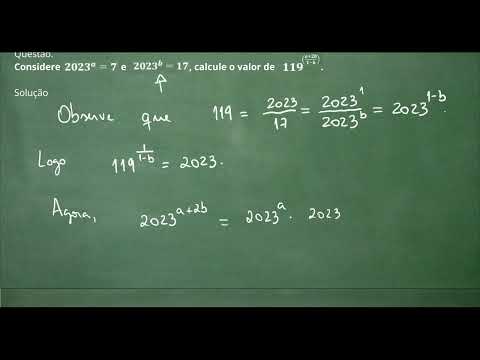 Questão.
Considere 2023ᵃ = 7 e 2023ᵇ = 17, calcule o valor de 119^((a+2b)/(1-b)).
Solução
Observe que 119 = 2023/17 = 2023¹/2023ᵇ = 2023^(1-b).
Logo 119^(1/(1-b)) = 2023.
Agora, 2023^(a+2b) = 2023ᵃ · 2023